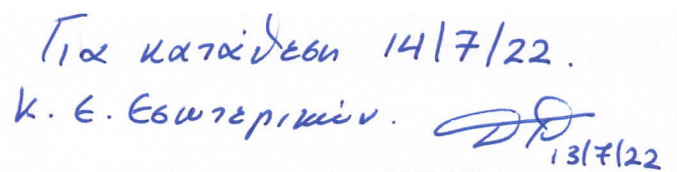 Για κατάθεση 14/7/22.
Κ. Ε. Εσωτερικών.
13/7/22